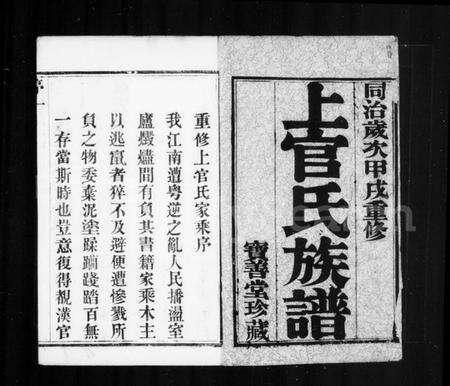 同治歲次甲戌重修
上官氏族譜
寶善堂珍藏
重修上官氏家乘序
我江南遭粵逆之亂人民播盪室
廬燬燼間有負其書籍家乘木主
以逃竄者猝不及避便遭慘戮所
負之物委棄泥塗蹂躪踐踏百無
一存當斯時也豈意復得覩漢官